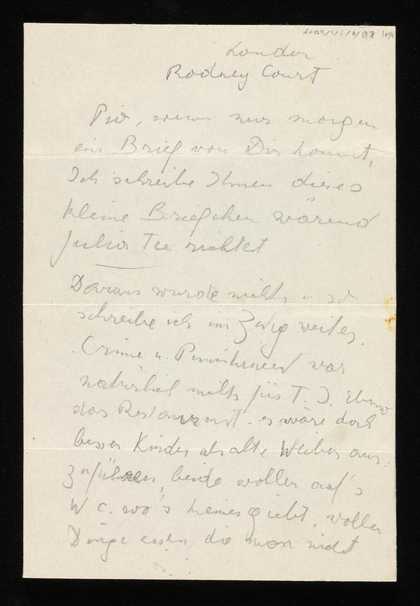 London
Rodney Court
Pio, wenn nur morgen
ein Brief von Dir kommt,
Ich schreibe Ihnen dieses
kleine Briefchen wärend
Julia Tee richtet
Daraus wurde nichts u. so
schreibe ich im Zuge weiter.
Crime u. Punishment war
natürlich nichts für T. J. Ebenso
das Restaurant. es wäre doch
besser Kinder als alte Weiber aus-
zuführen, beide wollen auf's
W C. wo's keines giebt, wollen
Dinge essen, die man nicht